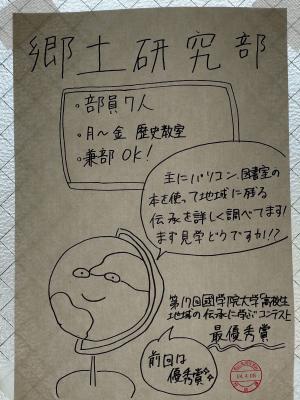 郷土研究部
・部員7人
・月〜金 歴史教室
・兼部OK!
主にパソコン、図書室の
本を使って地域に残る
伝承を詳しく調べてます!
まず見学どうですか!?
第17回國學院大學高校生
地域の伝承に学ぶコンテスト
最優秀賞
前回は
優秀賞